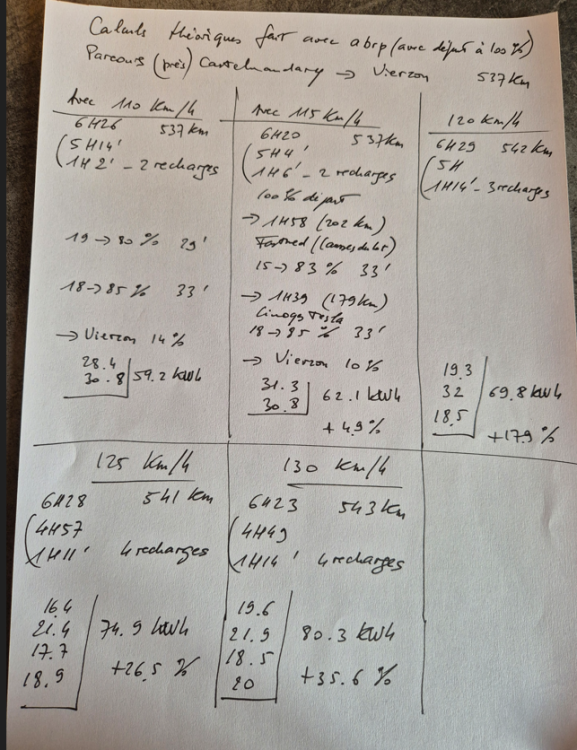 Calculs théoriques fait avec abrp (avec départ à 100 %)
Parcours (près) Castelnaudary → Vierzon 537 km
Avec 110 km/h
6H26 537 km
5H14'
1H2' - 2 recharges
19 → 80 % 29'
18 → 85 % 33'
→ Vierzon 14 %
28.4
30.8 59.2 kWh
Avec 115 km/h
6H20 537 km
5H4'
1H6' - 2 recharges
100 % départ
→ 1H58 (202 km)
Fastned
15 → 83 % 33'
→ 1H39 (179 km)
Limoges Tesla
18 → 85 % 33'
→ Vierzon 10 %
31.3
30.8 62.1 kWh
+ 4.9 %
120 km/h
6H29 542 km
5H
1H14' - 3 recharges
19.3
32 69.8 kWh
18.5
+17.9 %
125 km/h
6H28 541 km
4H57
1H11' 4 recharges
16.4
21.4 74.9 kWh
17.7
18.9 +26.5 %
130 km/h
6H23 543 km
4H49
1H14' 4 recharges
19.6
21.9 80.3 kWh
18.5
20 +35.6 %